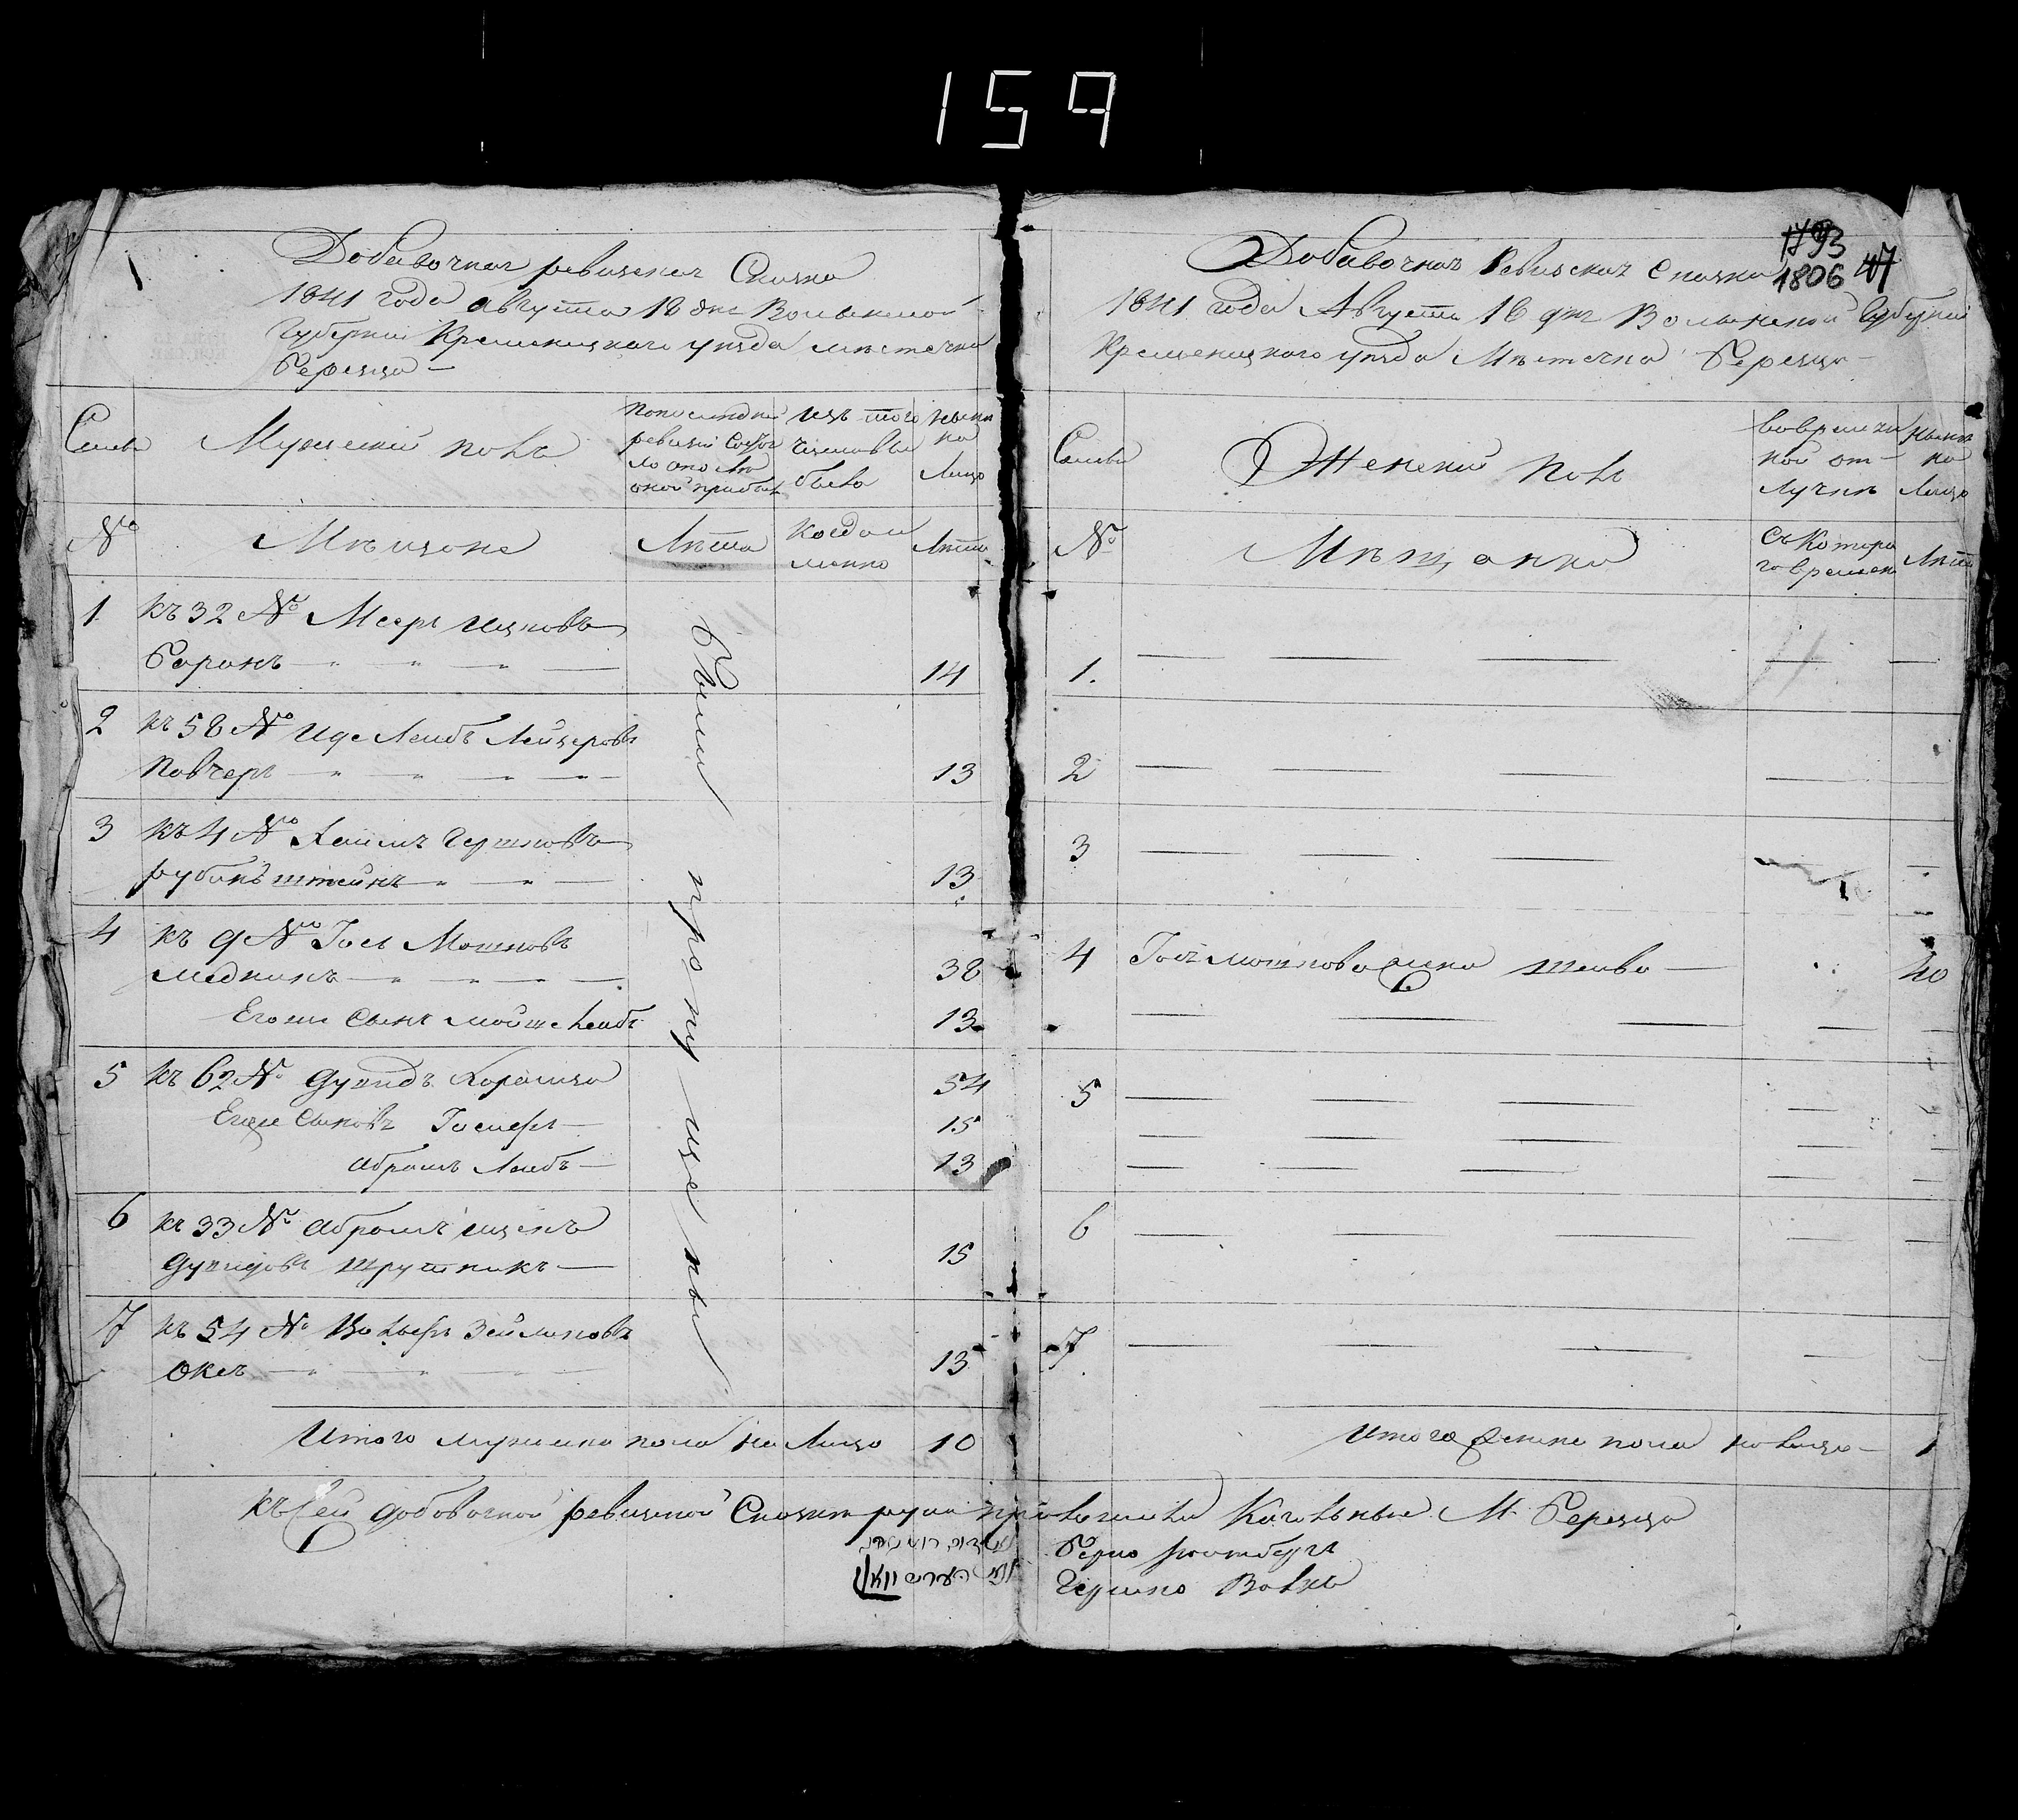 159
Добавочная ревизская Сказка
1841 года августа 18 дня Волынской
Губернии Кременецкаго уезда местечка
Березца —
Семьи
Мужеский полъ
по последней ревизіи состояло и после оной прибыло
изъ того числа выбыло
ныне на лицо
№
Мещане
Лета
Когда именно
Лета
Были пропущены
1 къ 32 № Меер Ицковъ
Баранъ — 14
2 къ 58 № Иде Леибъ Лейзеровъ
Повчеръ — 13
3 къ 4 № Хаимъ Гершковъ
рубинштейнъ — 13
4 къ 9 № Іось Мошковъ
медникъ — 38
Его же Сынъ Мойше Леибъ 13
5 къ 62 № Дувидъ Хараницо 54
Его же Сыновъ Іосиферъ — 15
Абрамъ Леибъ — 13
6 къ 33 № Абрамъ Ицекъ
Дувидовъ Трушникъ — 15
7 къ 54 № Вольфъ Зеиликовъ
Оксъ — 13
Итого мужеска пола на Лицо 10
1793
1806 107
Добавочная Ревизская Сказка
1841 года Августа 18 дня Волынской Губерніи
Кременецкаго уезда Местечка Березца —
Семьи
Женский полъ
Во временной отлучке
ныне на Лицо
№
Мещанки
Съ котораго времени
Лета
1. —
2 —
3 —
4 Іося Мошкова жена Шейва — 40
5 —
6 —
7 —
Итого женска пола на лицо — 1
Къ сей добавочной ревизской Сказке руки приложили Кагальные М. Березца
Берко Ройтбергъ
Гершко Волкъ